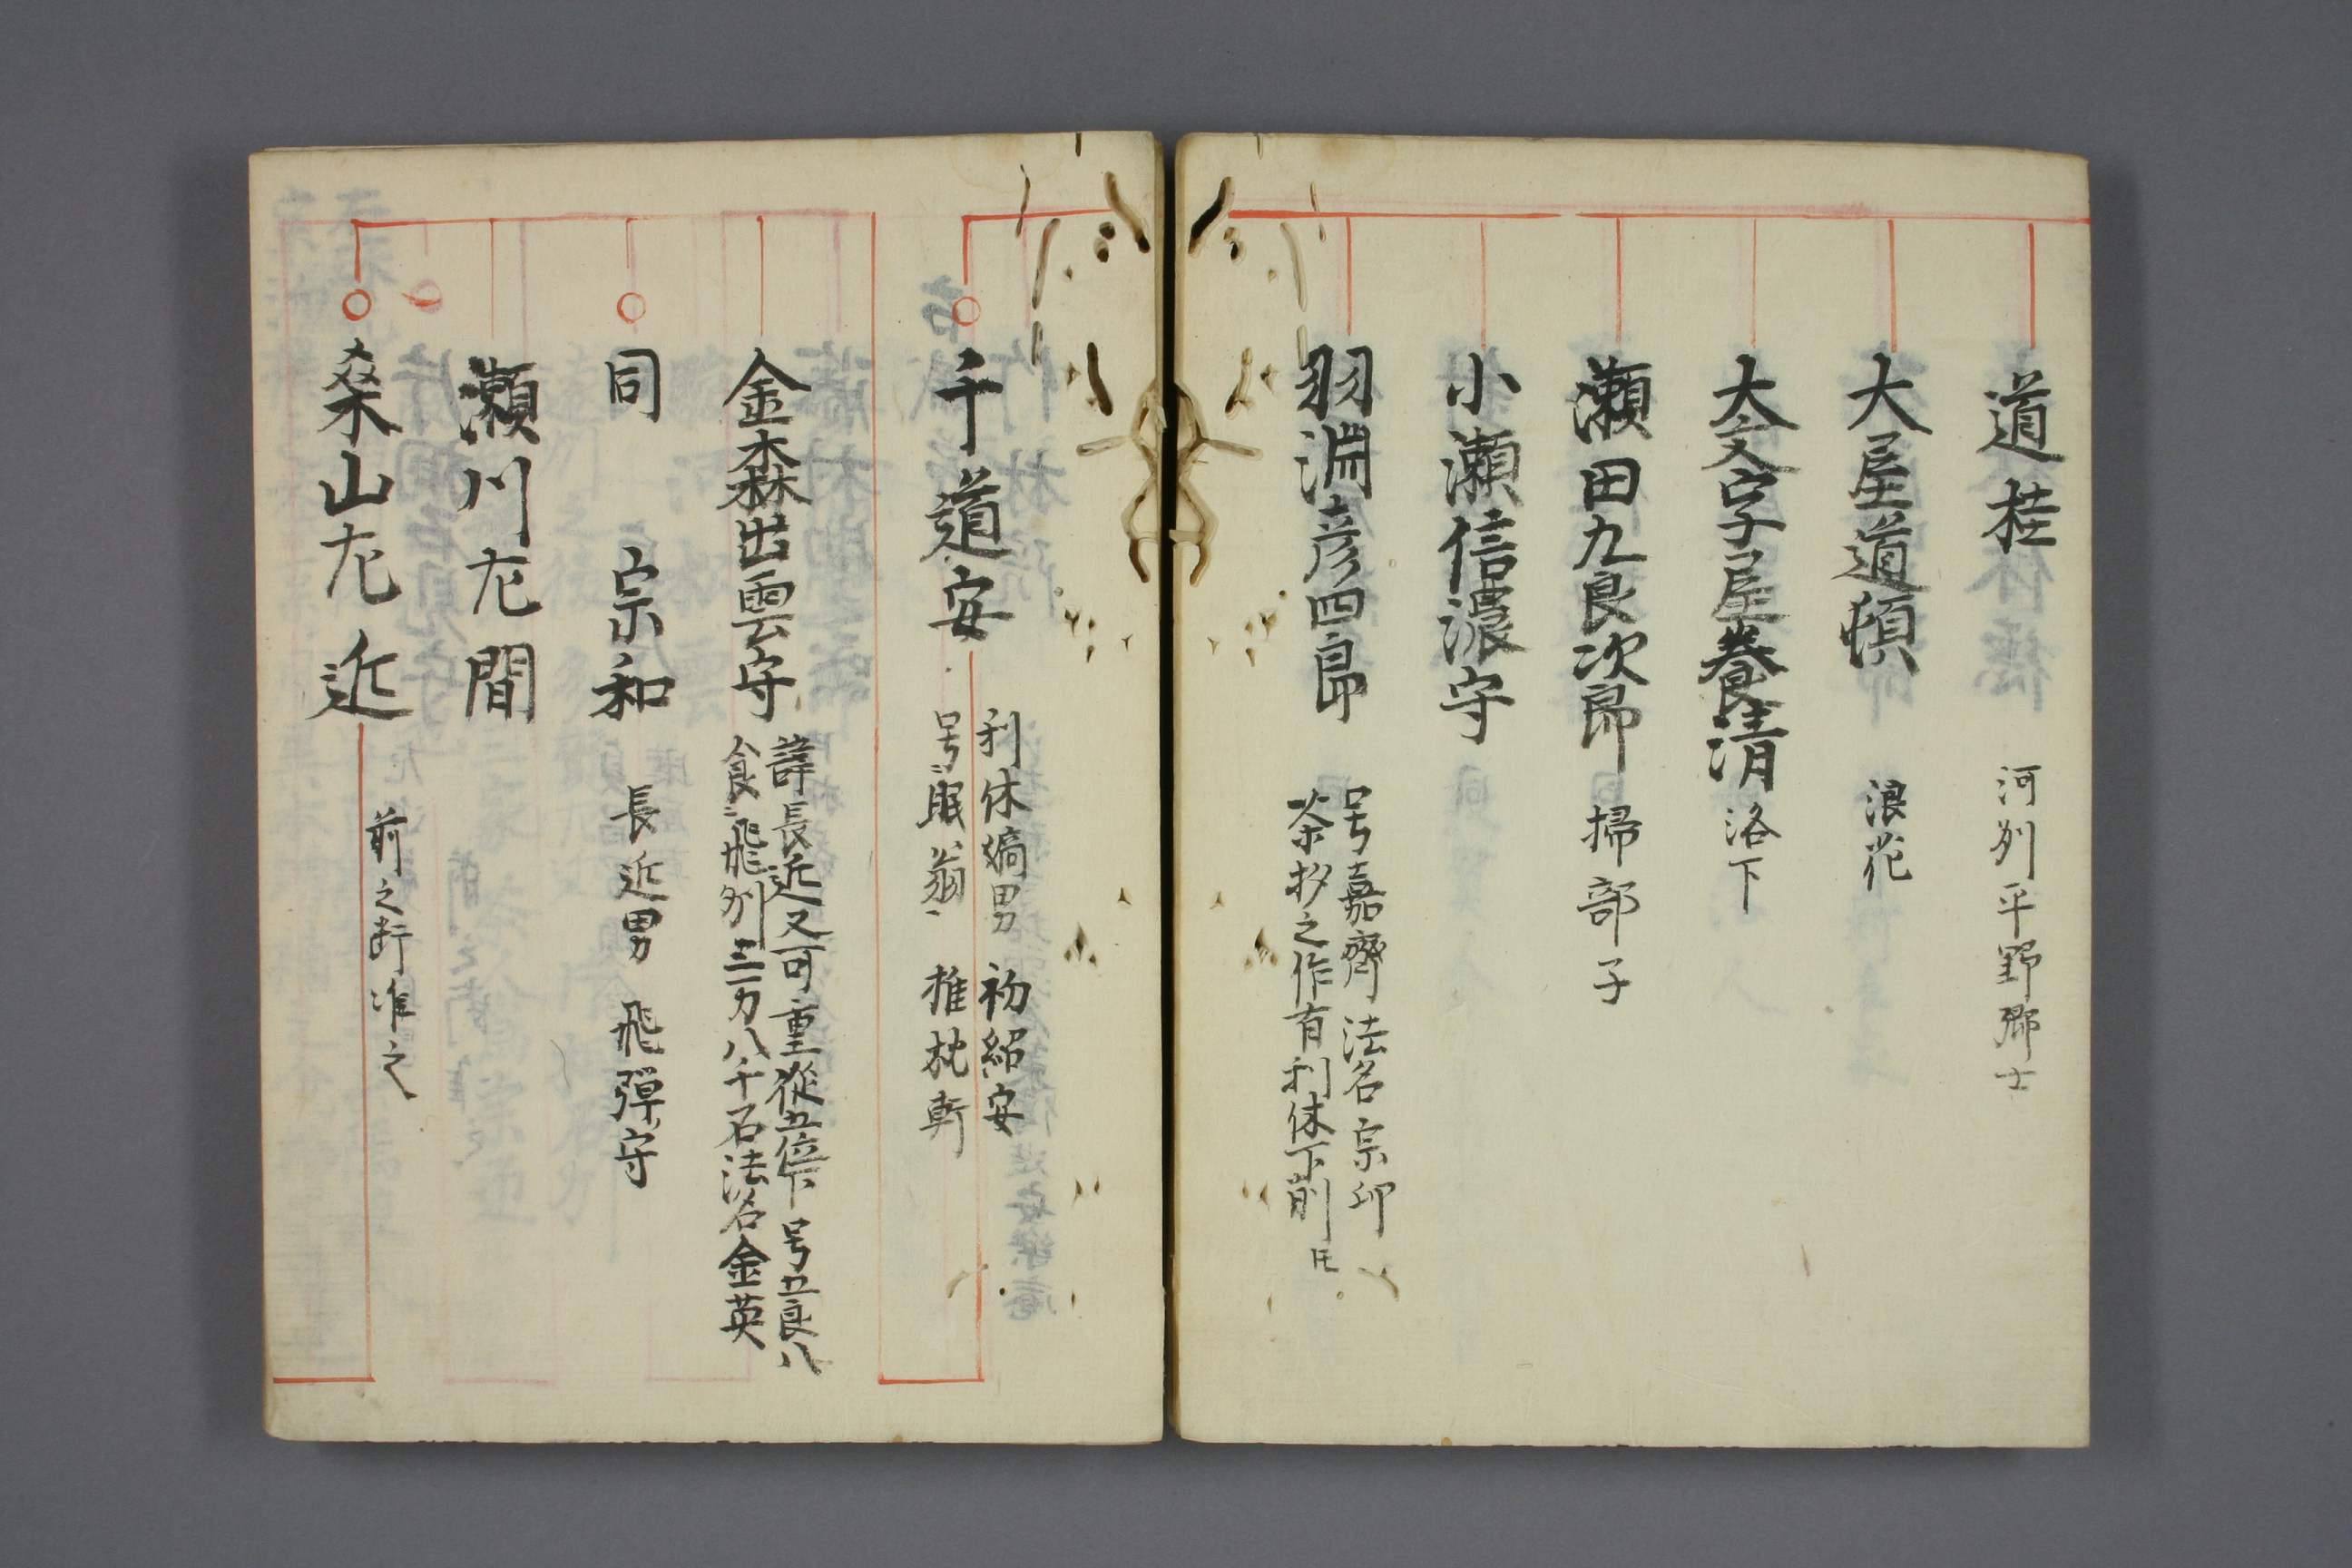 道桂 河州平野郷士
大屋道頓 浪花
大文字屋養清 洛下
瀬田九良次郎 掃部子
小瀬信濃守
羽淵彦四郎
号嘉齊 法名宗印
茶杓之作有利休下削圧
千道安
利休嫡男 初紹安
号眠翁 推枕軒
金森出雲守
諱長近又可重従五位下 号五良八
食飛州三万八千石法名金英
同 宗和 長近男 飛弾守
瀬川左間
桑山左近
前之断准之